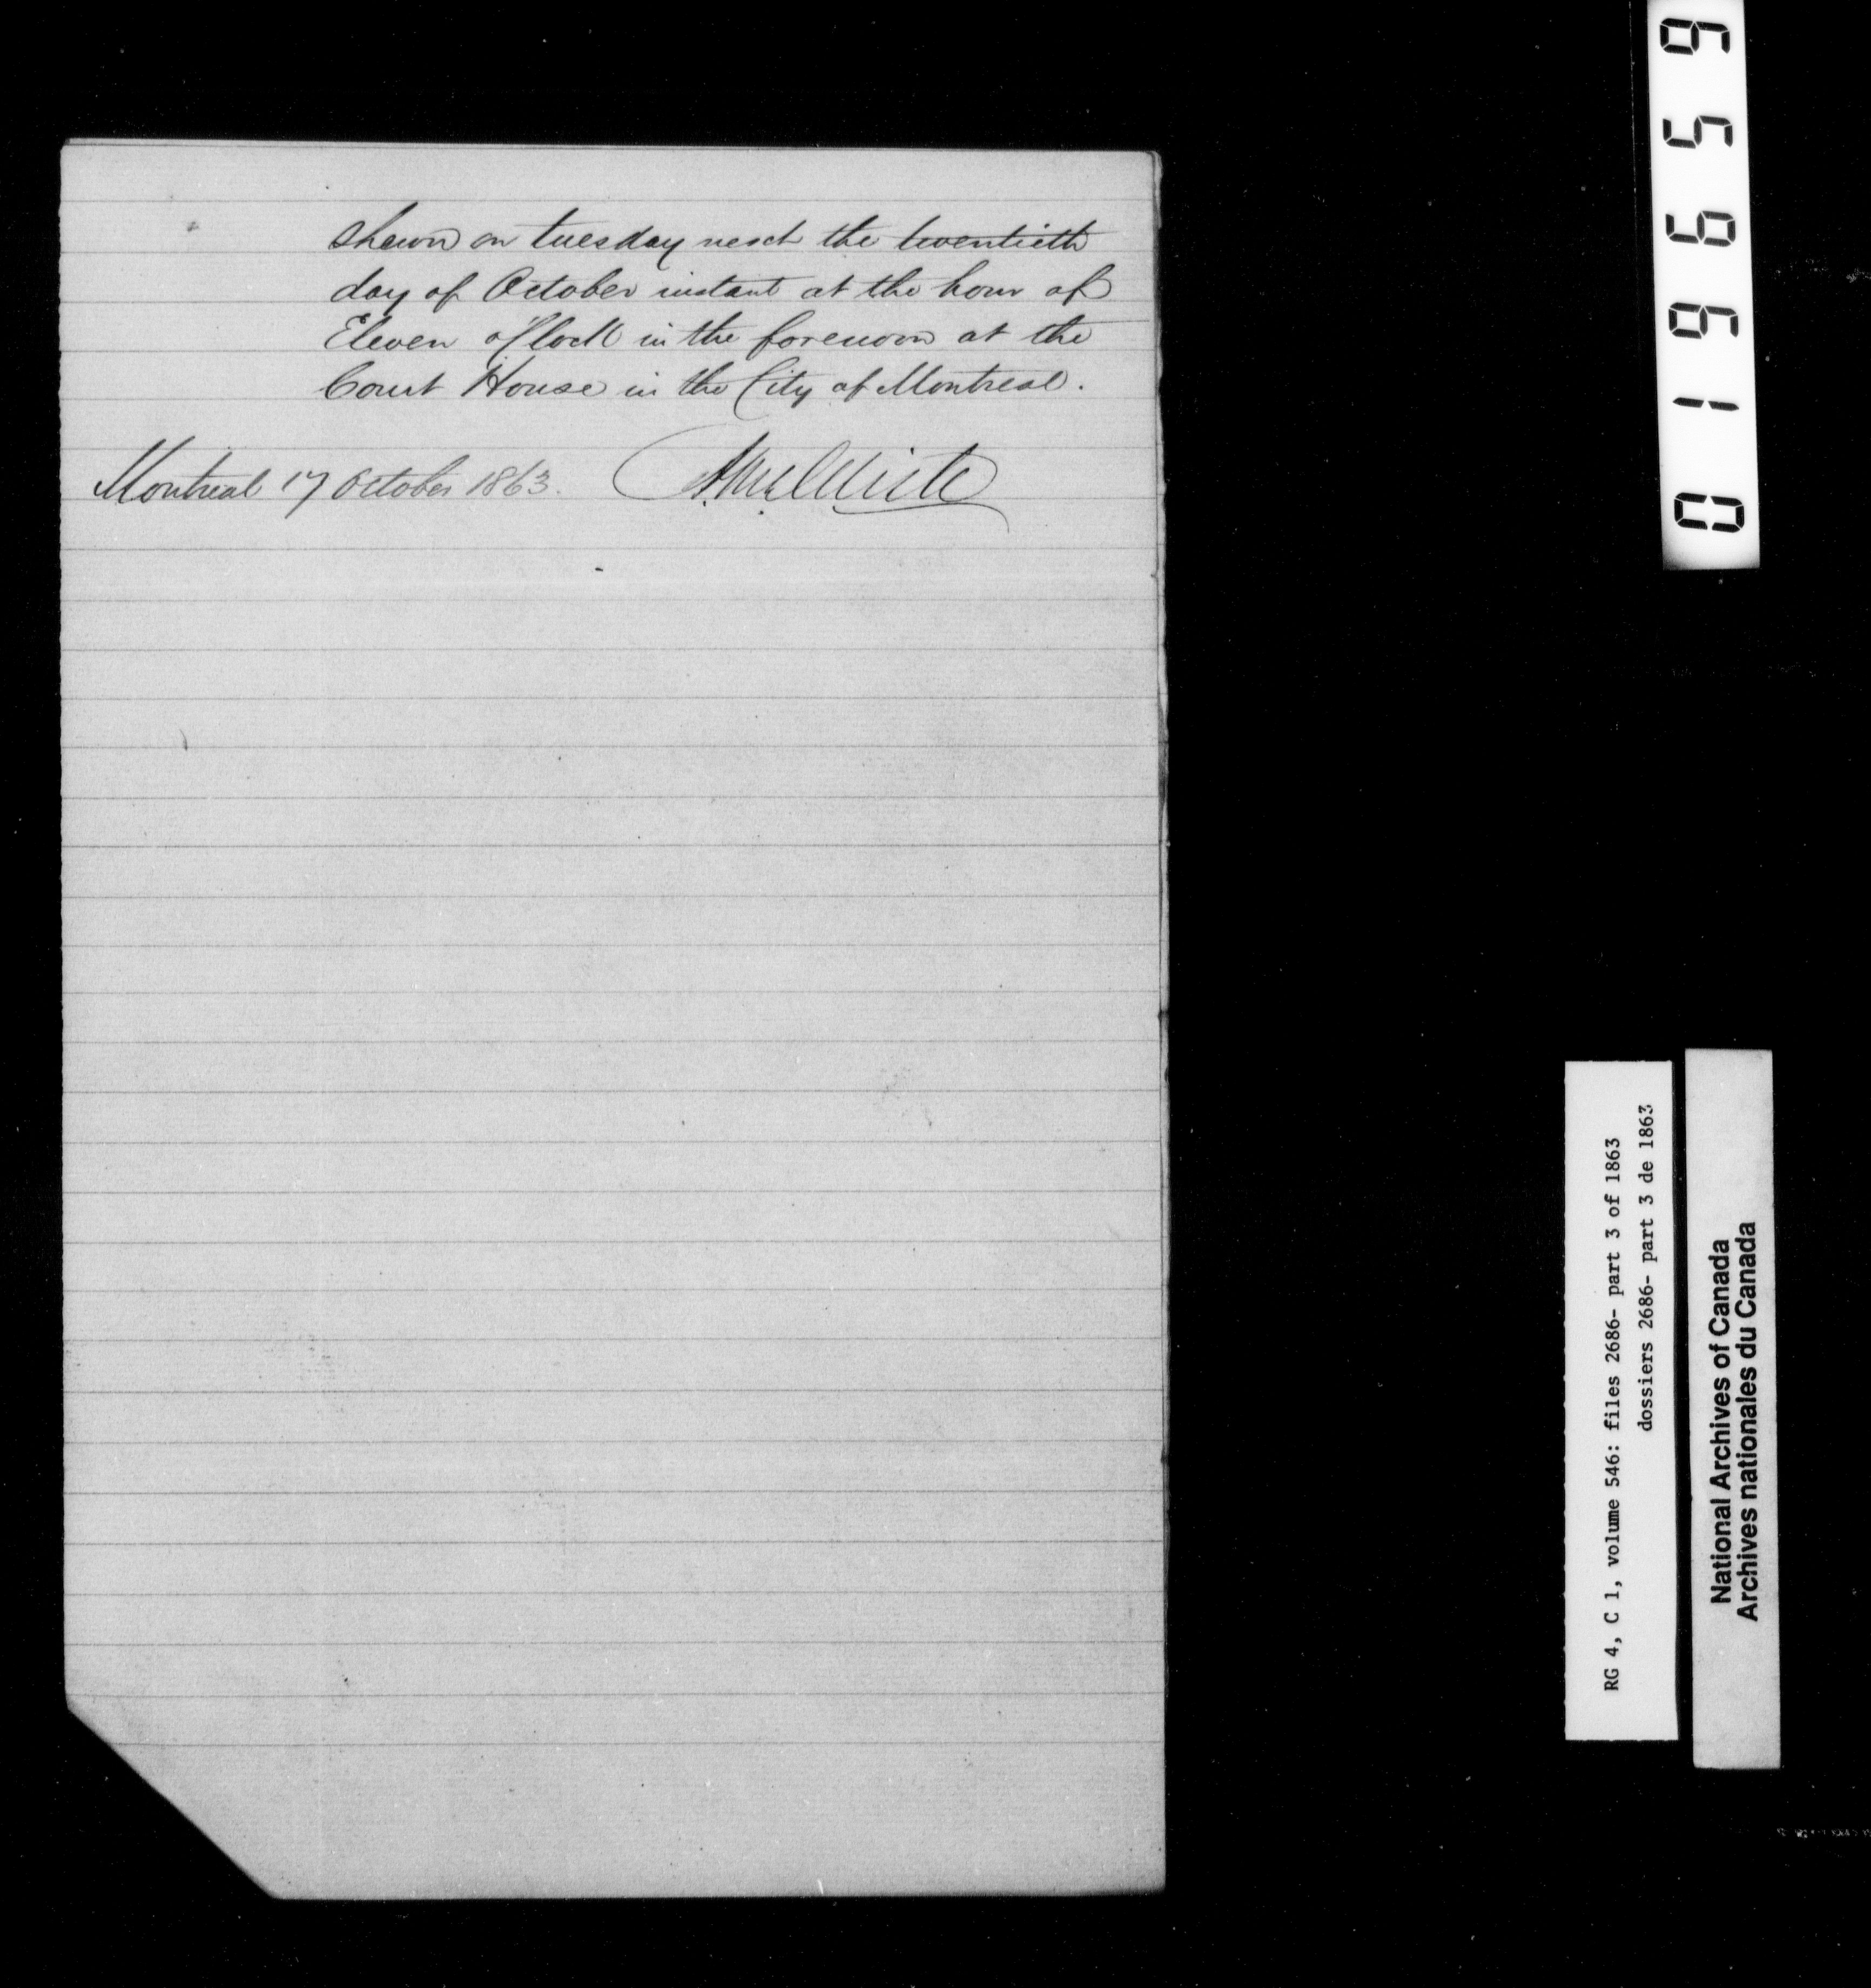 shewn on tuesday next the twentieth
day of October instant at the hour of
Eleven o'Clock in the forenoon at the
Court House in the City of Montreal.
Montreal 17 October 1863.
019659
RG 4, C 1, volume 546: files 2686- part 3 of 1863
dossiers 2686- part 3 de 1863
National Archives of Canada
Archives nationales du Canada